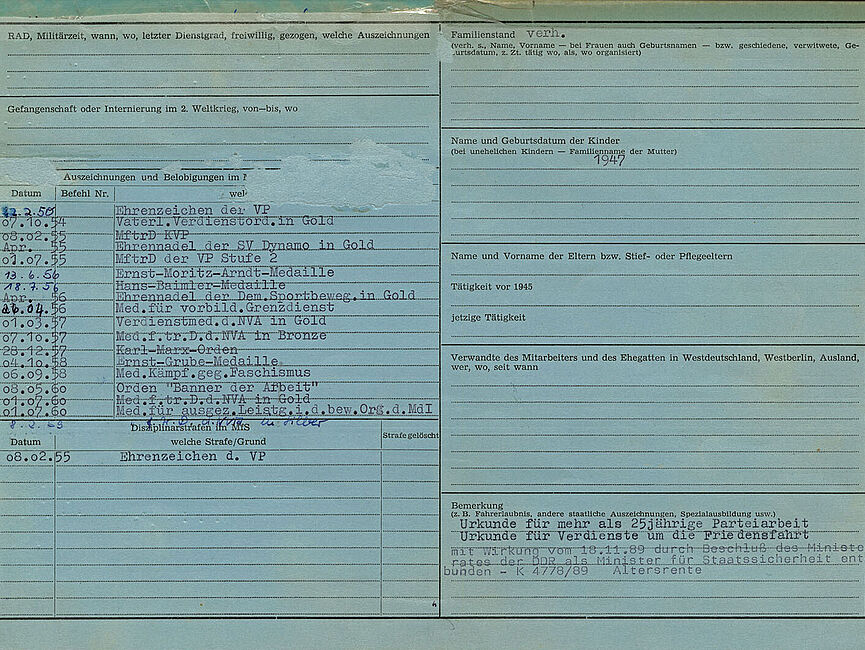 RAD, Militärzeit, wann, wo, letzter Dienstgrad, freiwillig, gezogen, welche Auszeichnungen
Gefangenschaft oder Internierung im 2. Weltkrieg, von—bis, wo
Auszeichnungen und Belobigungen im
Datum Befehl Nr. wel
Ehrenzeichen der VP
07.10.54 Vaterl.Verdienstord.in Gold
08.02.55 MftrD KVP
Apr. 55 Ehrennadel der SV Dynamo in Gold
01.07.55 MftrD der VP Stufe 2
13.6.56 Ernst-Moritz-Arndt-Medaille
18.7.56 Hans-Baimler-Medaille
Apr. 56 Ehrennadel der Dem.Sportbeweg.in Gold
04.56 Med.für vorbild.Grenzdienst
01.03.57 Verdienstmed.d.NVA in Gold
07.10.57 Med.f.tr.D.d.NVA in Bronze
28.12.57 Karl-Marx-Orden
04.10.58 Ernst-Grube-Medaille
06.09.58 Med.Kämpf.geg.Faschismus
08.05.60 Orden "Banner der Arbeit"
01.07.60 Med.f.tr.D.d.NVA in Gold
01.07.60 Med.für ausgez.Leistg.i.d.bew.Org.d.MdI
8.2.63 in Silber
Disziplinarstrafen im MfS
Datum welche Strafe/Grund Strafe gelöscht
08.02.55 Ehrenzeichen d. VP
Familienstand verh.
(verh. s., Name, Vorname — bei Frauen auch Geburtsnamen — bzw. geschiedene, verwitwete, Ge-
urtsdatum, z. Zt. tätig wo, als, wo organisiert)
Name und Geburtsdatum der Kinder
(bei unehelichen Kindern — Familienname der Mutter)
1947
Name und Vorname der Eltern bzw. Stief- oder Pflegeeltern
Tätigkeit vor 1945
jetzige Tätigkeit
Verwandte des Mitarbeiters und des Ehegatten in Westdeutschland, Westberlin, Ausland,
wer, wo, seit wann
Bemerkung
(z. B. Fahrerlaubnis, andere staatliche Auszeichnungen, Spezialausbildung usw.)
Urkunde für mehr als 25jährige Parteiarbeit
Urkunde für Verdienste um die Friedensfahrt
mit Wirkung vom 18.11.89 durch Beschluß des Ministe
rates der DDR als Minister für Staatssicherheit ent
bunden - K 4778/89 Altersrente